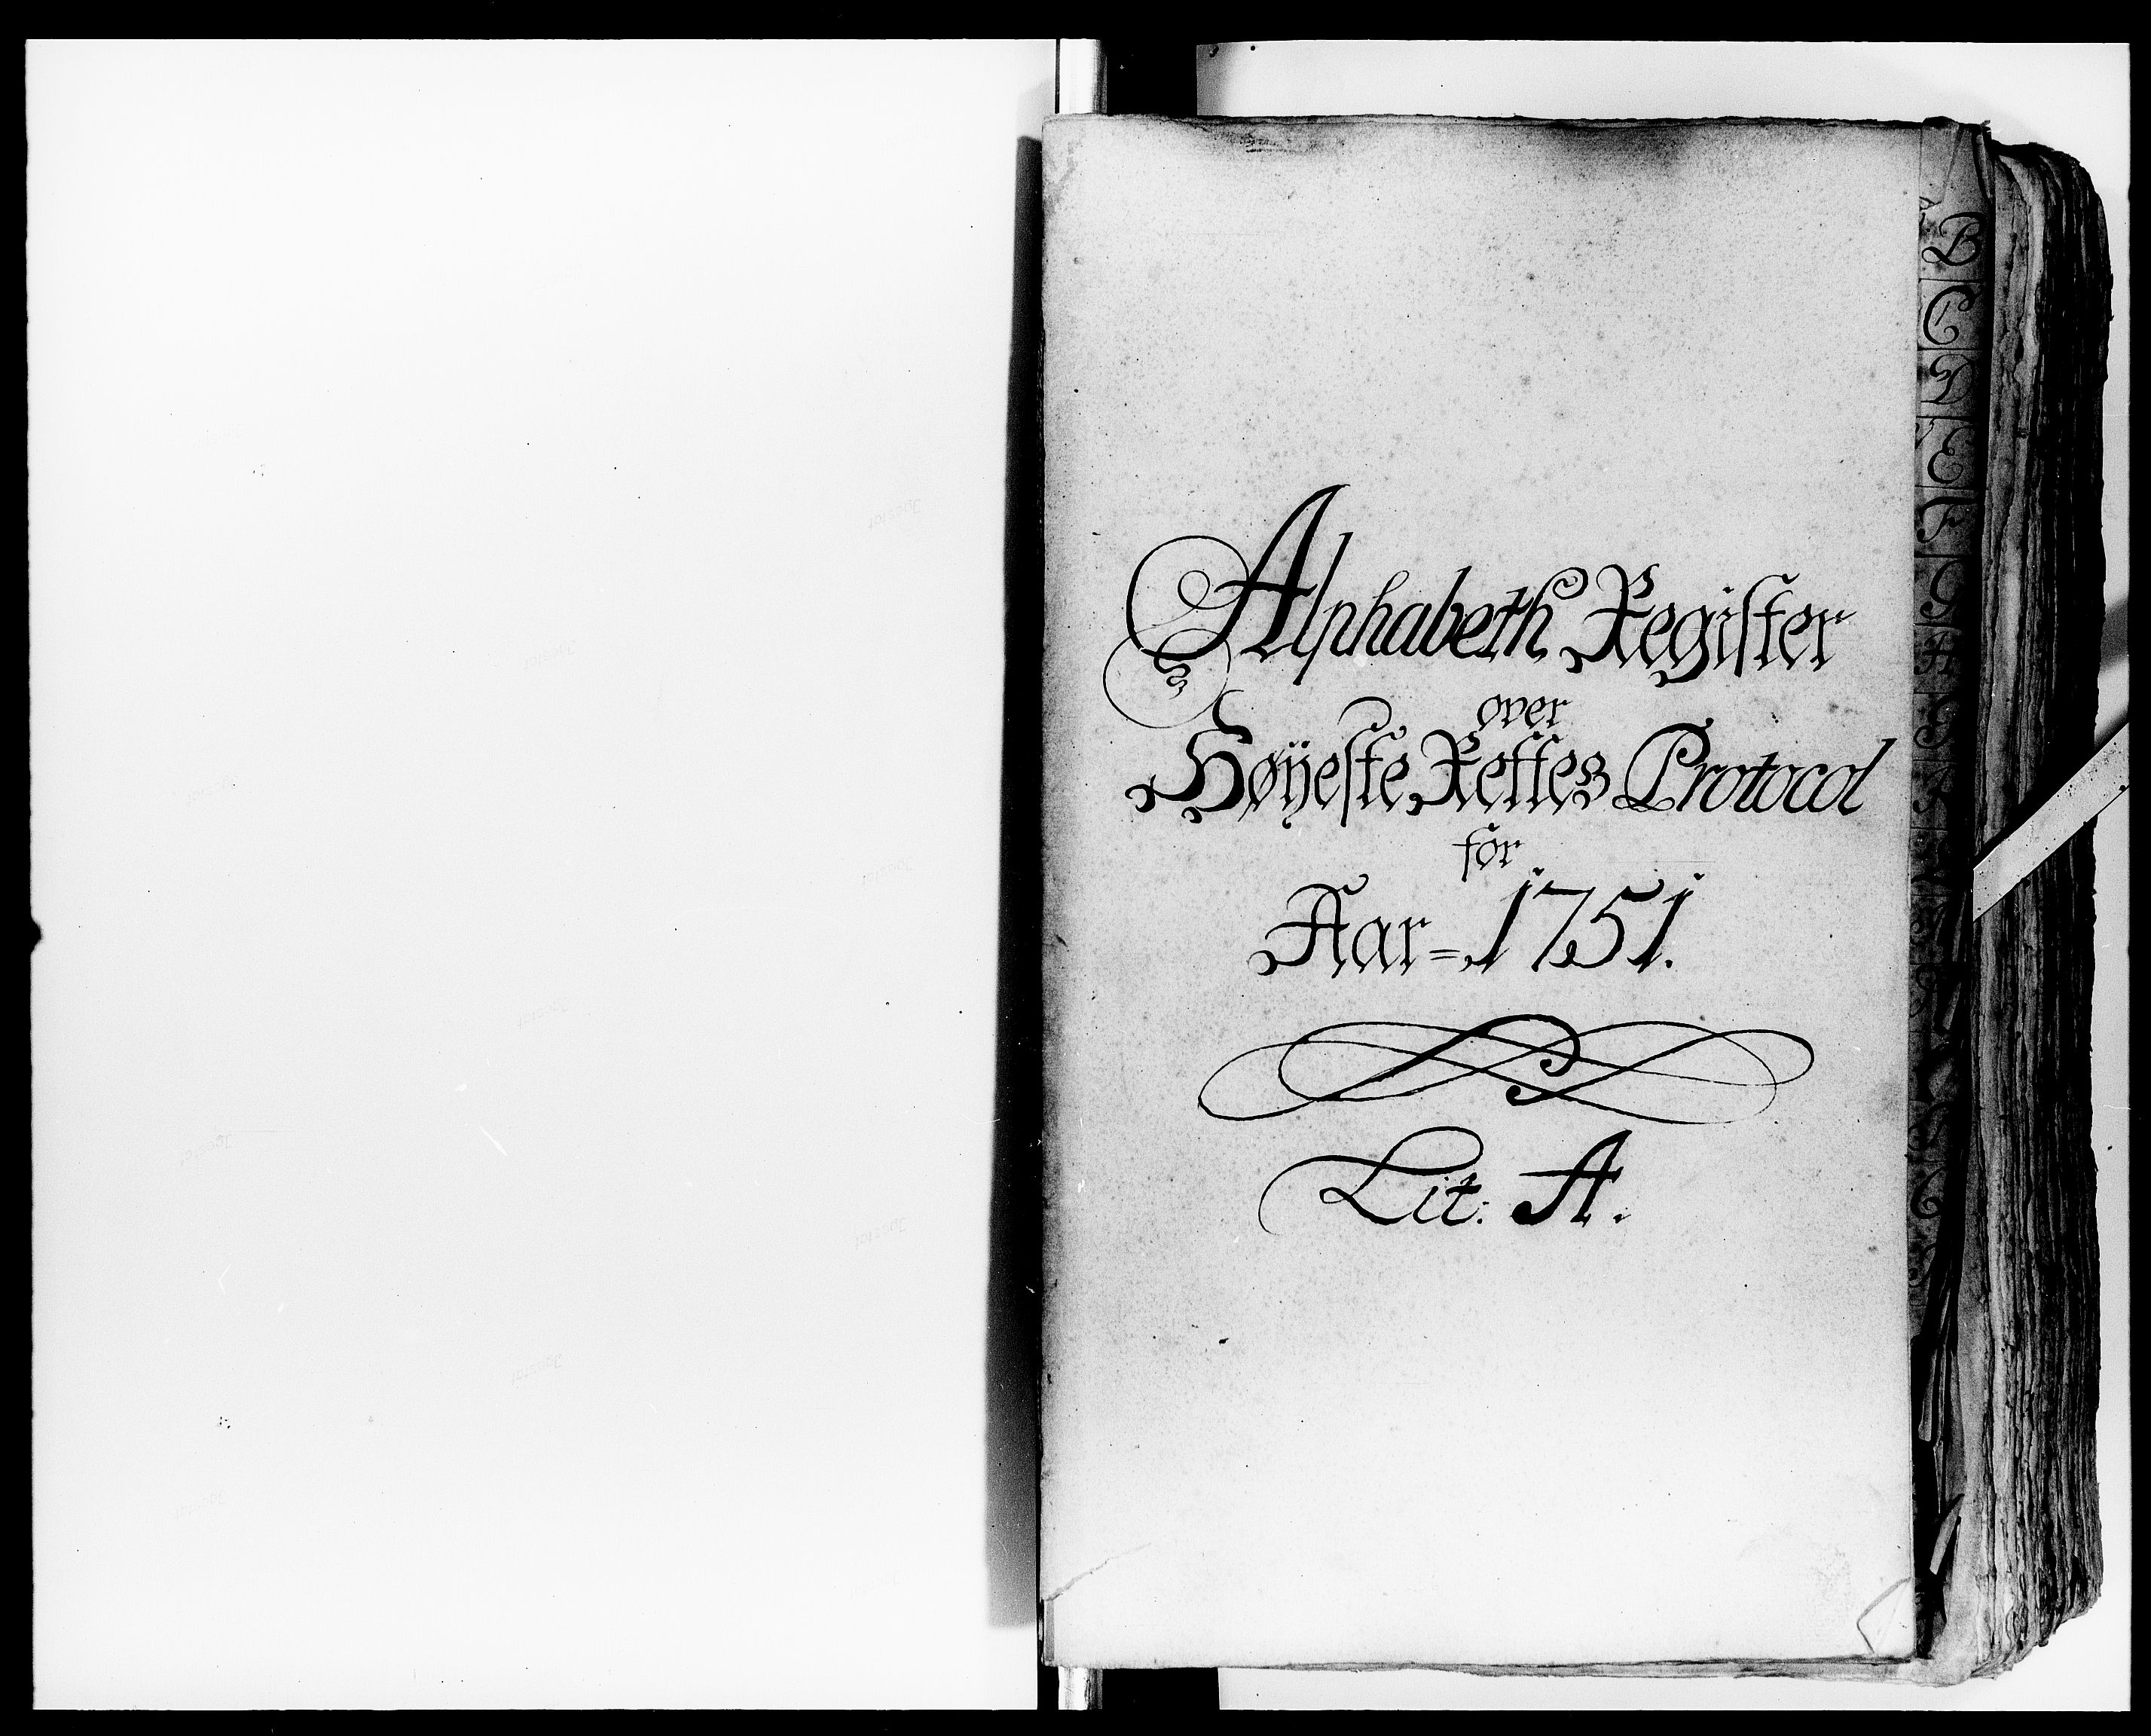 Alphabeth Register
over
Høÿeste Rettes Protocol
for
Aar=1751.
Lit: A.
B
C
D
E
F
G
H